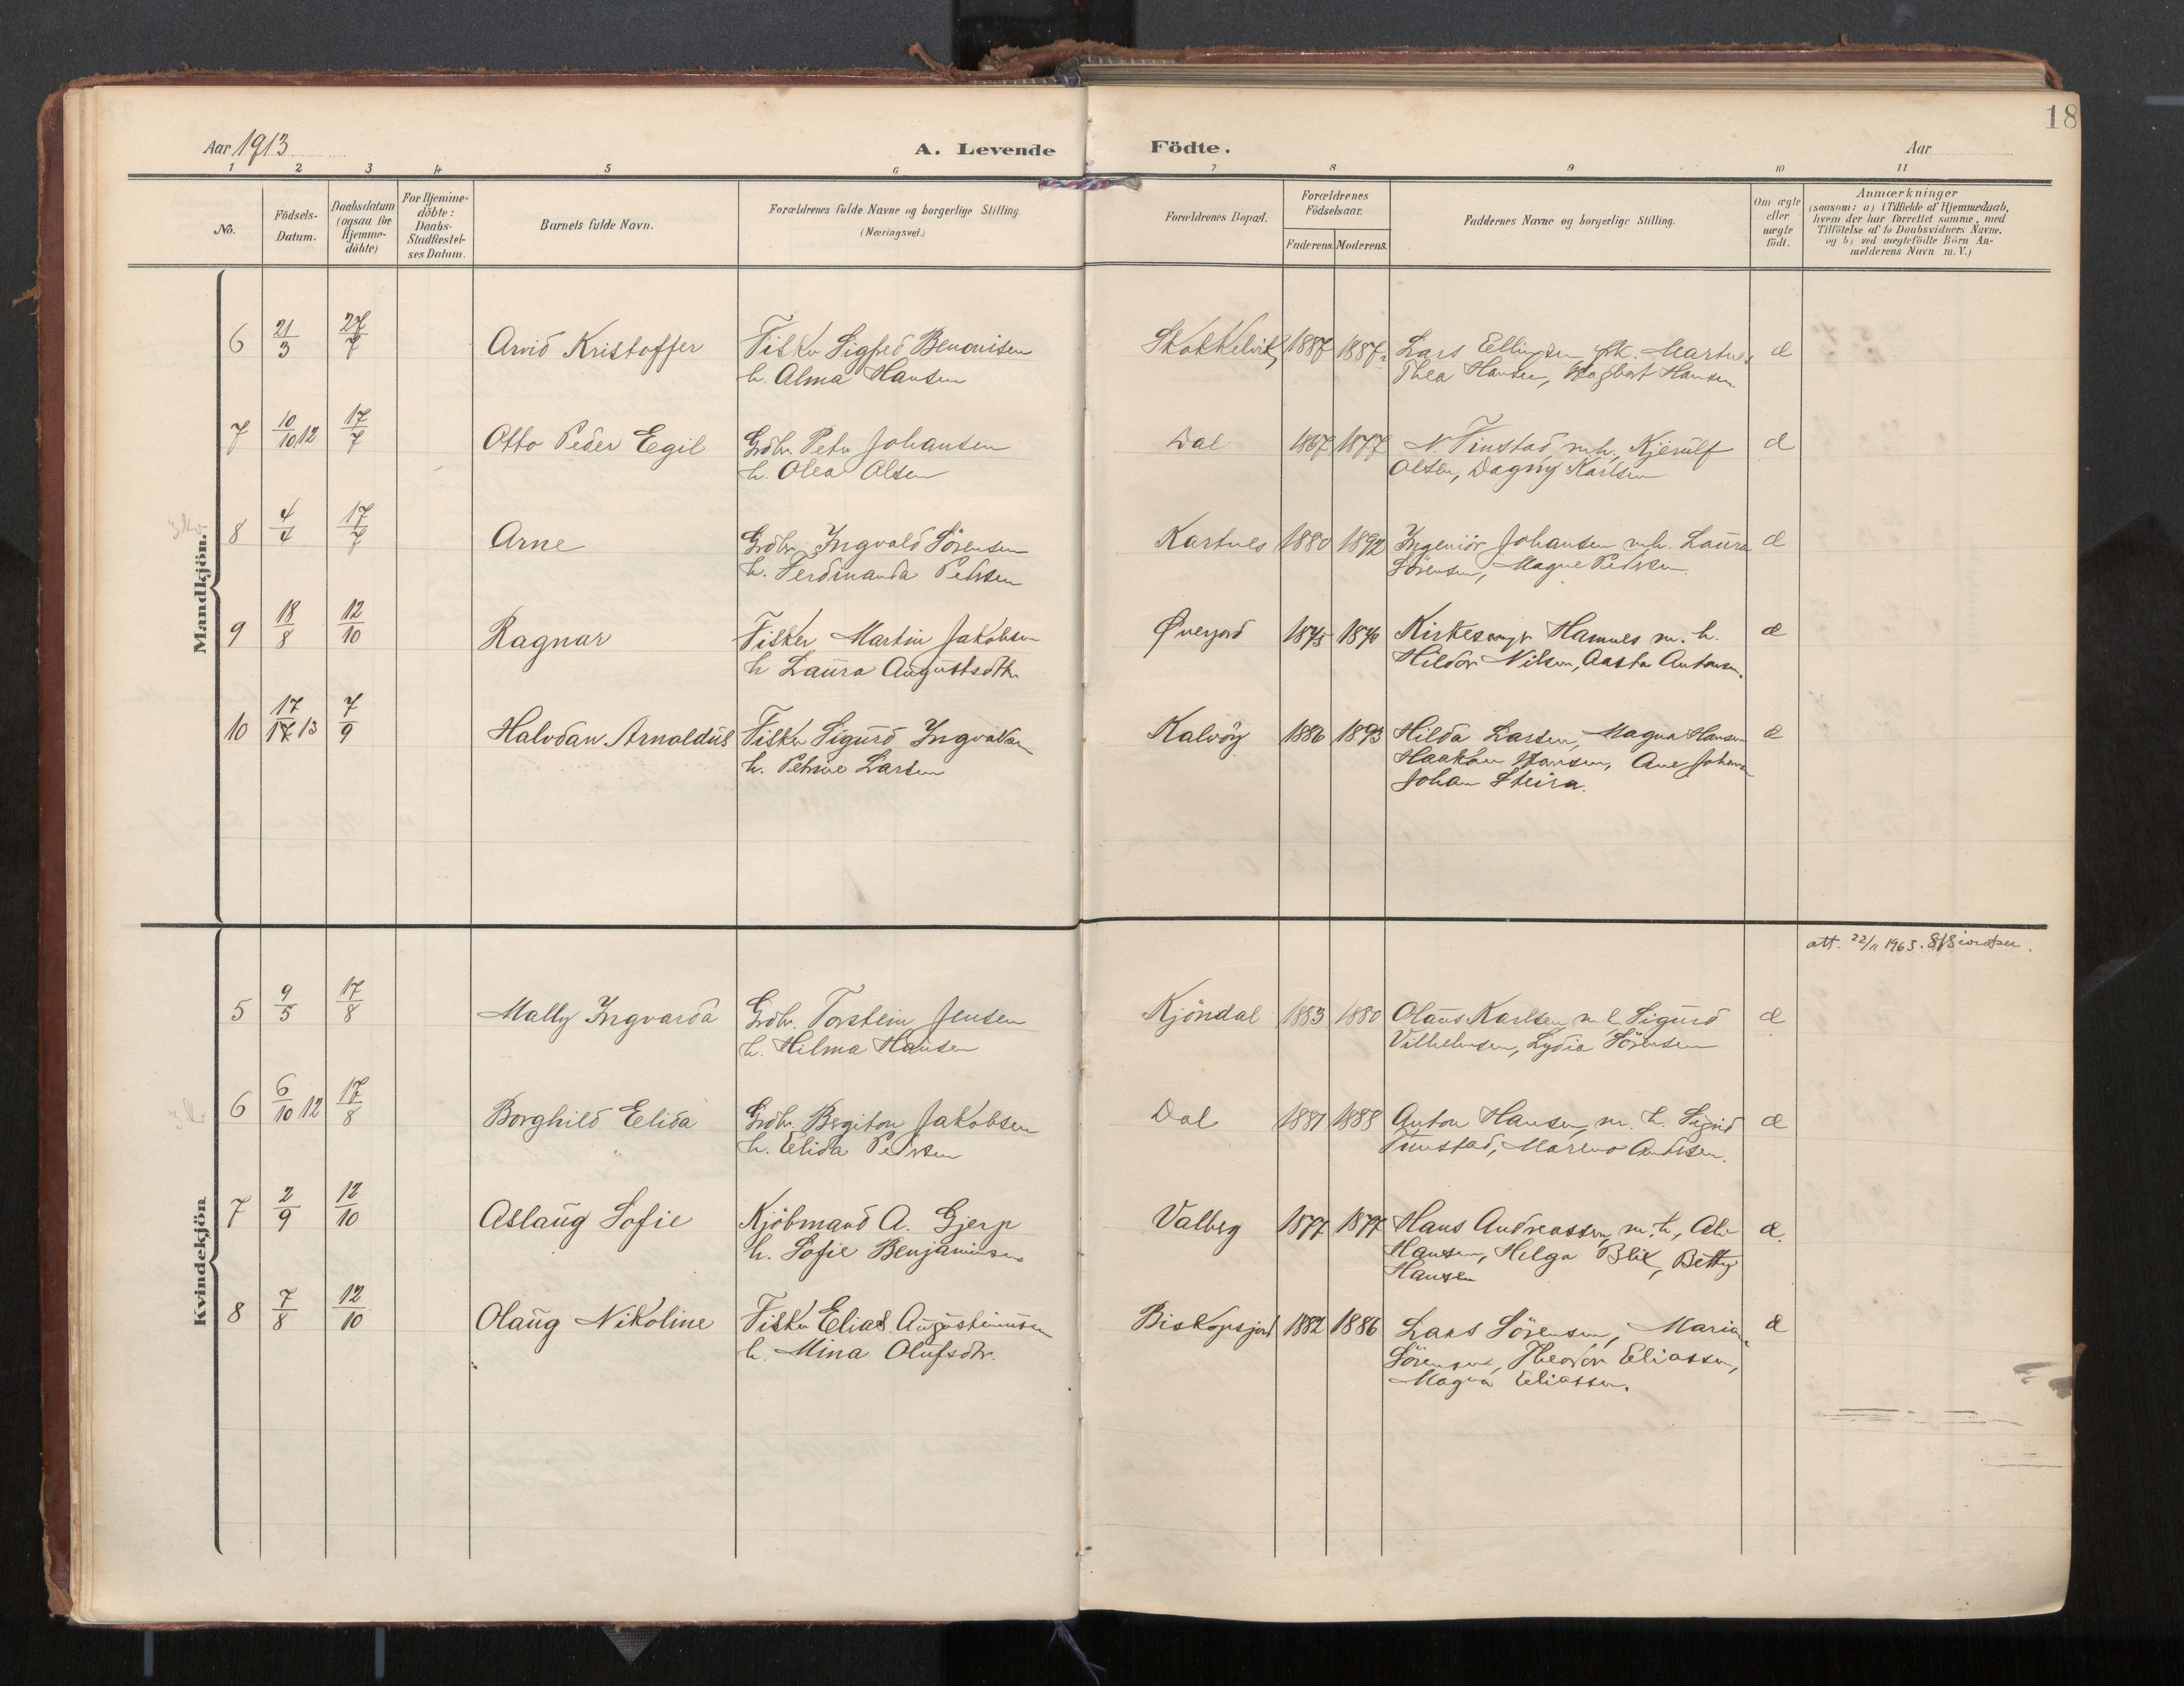 18
Aar 1913
A. Levende
Födte.
Aar
1 2 3 4 5 6 7 8 9 10 11
No.
Födsels-Datum.
Daabsdatum (ogsaa for Hjemme-döbte)
For Hjemme-döbte: Daabs-Stadfæstel-ses Datum.
Barnets fulde Navn.
Forældrenes fulde Navne og borgerlige Stilling.
(Næringsvei.)
Forældrenes Bopæl.
Forældrenes Födselsaar.
Faderens. Moderens.
Faddernes Navne og borgerlige Stilling.
Om ægte eller uægte födt.
Anmærkninger
(saasom: a) i Tilfælde af Hjemmedaab,
hvem der har forrettet samme, med
Tilföielse af to Daabsvidners Navne,
og b) ved uægtefödte Börn An-
melderens Navn m. V.)
Mandkjön.
6 21/3 27/7 Arvid Kristoffer Fisker Sigfred Benonisen Skokkelvik 1887 1887 Lars Ellingsen, Martines æ
h. Alma Hansen Thea Hansen, Dagbart Hansen.
7 10/10 12 17/7 Otto Peder Eegil Grdbr. Peter Johansen Dal 1867 1877 N. Finstad m.h. Kjerulf æ
h. Olea Olsen Olsen, Dagny Karlsen
8 4/4 17/7 Arne Grdbr. Ingvald Sörensen Kartnes 1880 1892 Ingeniör Johansen m.h. Laura æ
h. Ferdinanda Pedersen Sörensen, Magne Pedersen.
9 18/8 12/10 Ragnar Fisker Martin Jakobsen Øverjord 1875 1876 Kirkesanger Hamnes m. h. æ
h Laura Augustsdtr Hildor Nilsen, Aasta Antonsen.
10 17/17 13 7/9 Halvdan Arnoldus Fisker Sigurd Ingvaldsen Kalvöy 1886 1893 Hilda Larsen, Magna Hansen æ
h. Petrine Larsen Haakon Hansen, Ane Johansen
Johan Steira.
att. 22/11 1963.
Kvindekjön
5 9/5 17/8 Mally Ingvarda Grdbr. Torstein Jensen Kjöndal 1883 1880 Olaus Karlsen m h Sigurd æ
h. Hilma Hansen Vilhelmsen, Lydia Sörensen
6 6/10 12 17/8 Borghild Elida Grdbr. Bergiton Jakobsen Dal 1881 1888 Anton Hansen m. h. Sigrid æ
h. Elida Pedersen Finstad, Mareno Andersen.
7 2/9 12/10 Aslaug Sofie Kjöbmand A. Gjerp Valberg 1877 1877 Hans Andreassen m. h, Alv æ.
h. Sofie Benjaminsen Hansen, Helga Blix, Betty
Hansen
8 7/8 12/10 Olaug Nikoline Fisker Elias Augustinussen Biskopsjord 1882 1886 Lars Sörensen, Marie æ
h. Mina Olufsdtr. Sörensen, Theodor Eliassen,
Magna Eliassen.